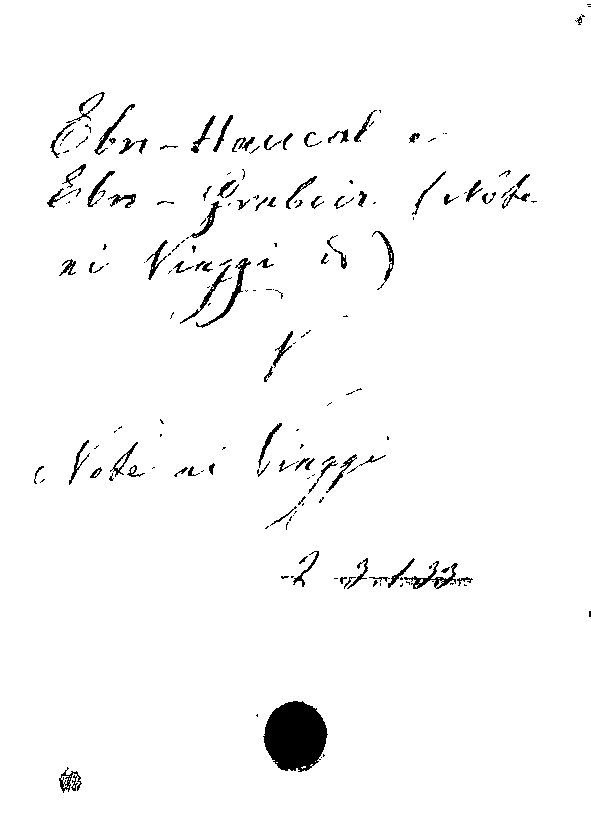 Ebn-Haucal e
Ebn-Giubeir (Note
ai Viaggi di)
V
Note ai Viaggi
2 3 133